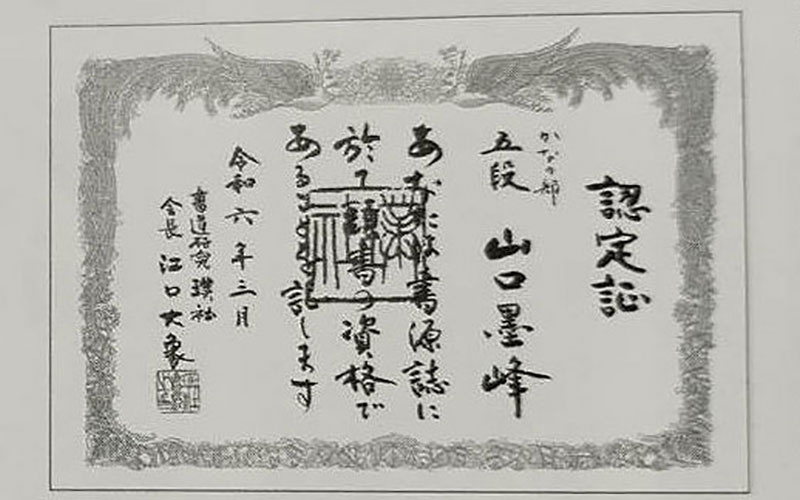 認定証
かなの部
五段 山口墨峰
あなたは書源誌に
於て頭書の資格で
あることを認します
令和六年三月
書道研究璞社
会長 江口大象